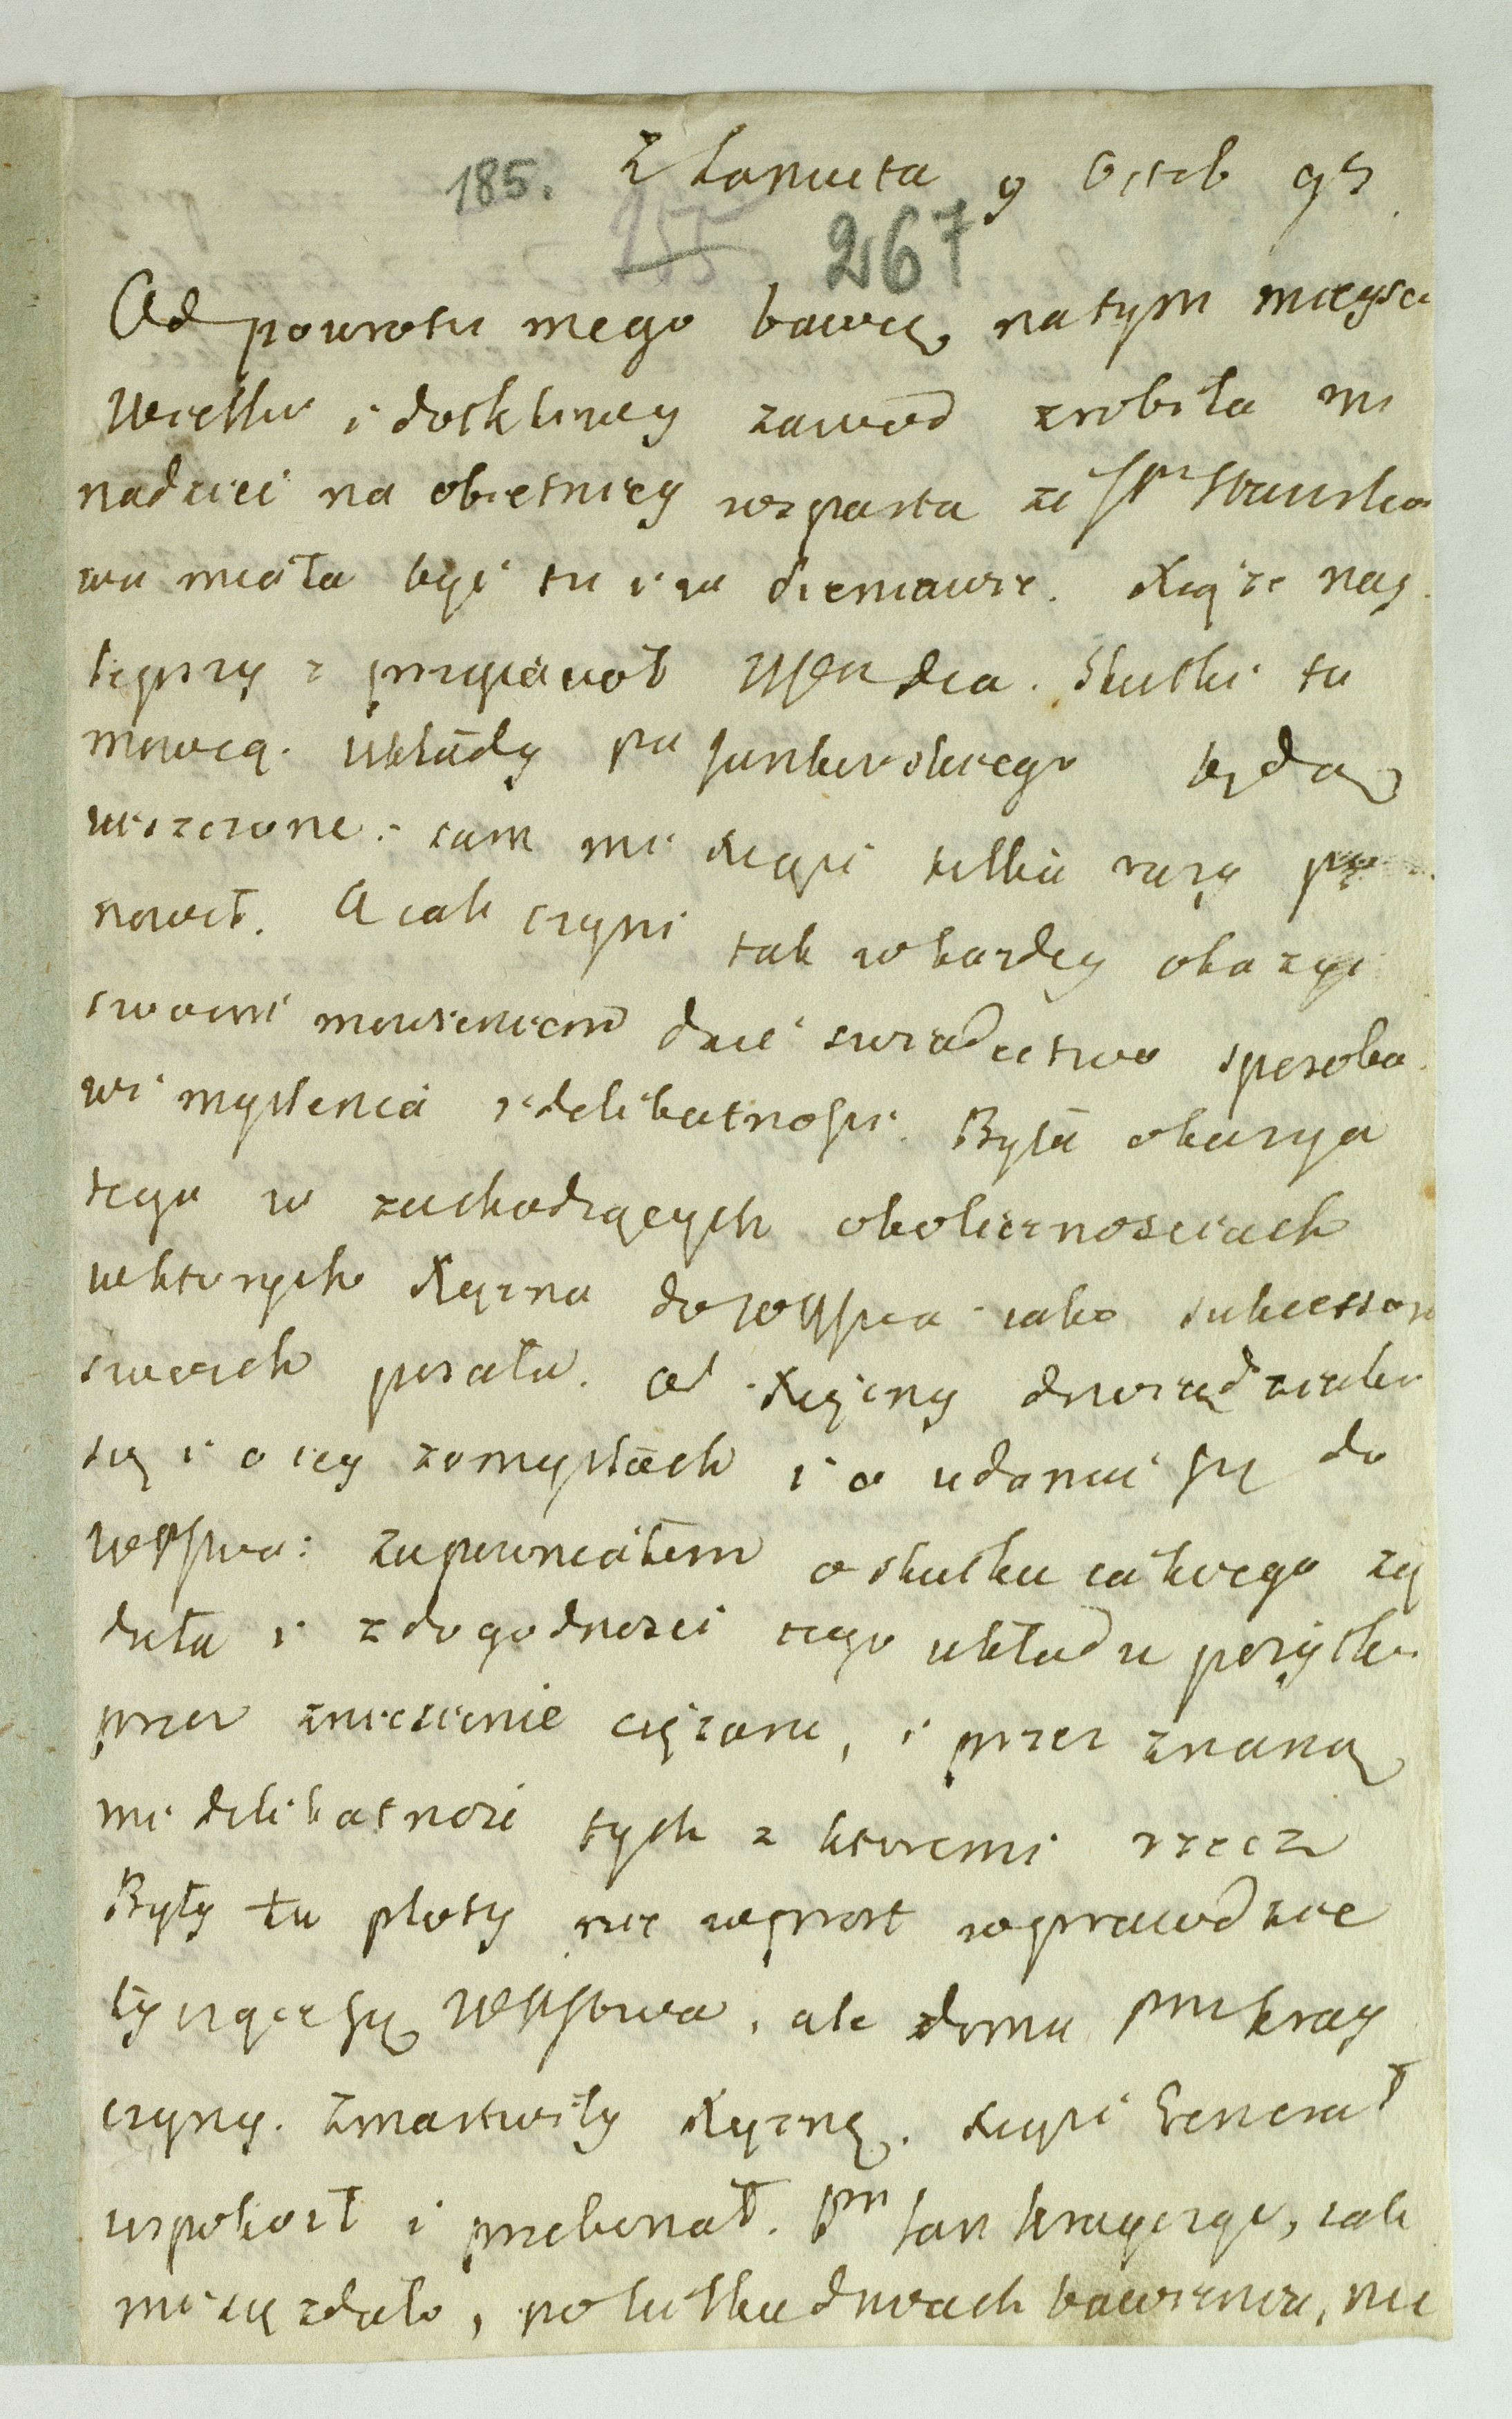 185. Z Łancuta 9 Octob 95
255 267
Od powrotu mego bawię na tym mieysc
Wielki i dotkliwy zawod zrobiła mi
nadziei na obietnicy wsparta że JPni Stanisło
wa miała być tu i w Sieniawie. Xiąże nay
lepszy z przyiacioł Dcia. Skutki tu
mowią. układy Pa Junkowskiego będą
uiszczone: sam mi Xiąże kilka razy po
nowił. A iak czyni tak w kazdey okazyi
swoim mowieniem daie swiadectwo sposobo
wi myslenia i delikatnosci. Była okazya
tego w zachodzących okolicznosciach
w ktorych Xiężna do iako sukcessor
swoich pisała. Od Xiężny dowiedziałem
się i o iey zamysłach i o udaniu się do
zapewniałem o skutku iakiego żą
dała i z dogodnosci tego układu pożytku
przez zniesienie ciężaru, i przez znaną
mi delikatnosc tych z ktoremi rzecz
Były tu plotki nie wprost wprawdzie
tyczące się ale domu Pni Kray
czyny. Zmartwiły Xiężnę. Xiąże Generał
uspokoił i przekonał. Pan Jan Krayczyc, iak
mi się zdało, po kilku dniach bawienia, nie